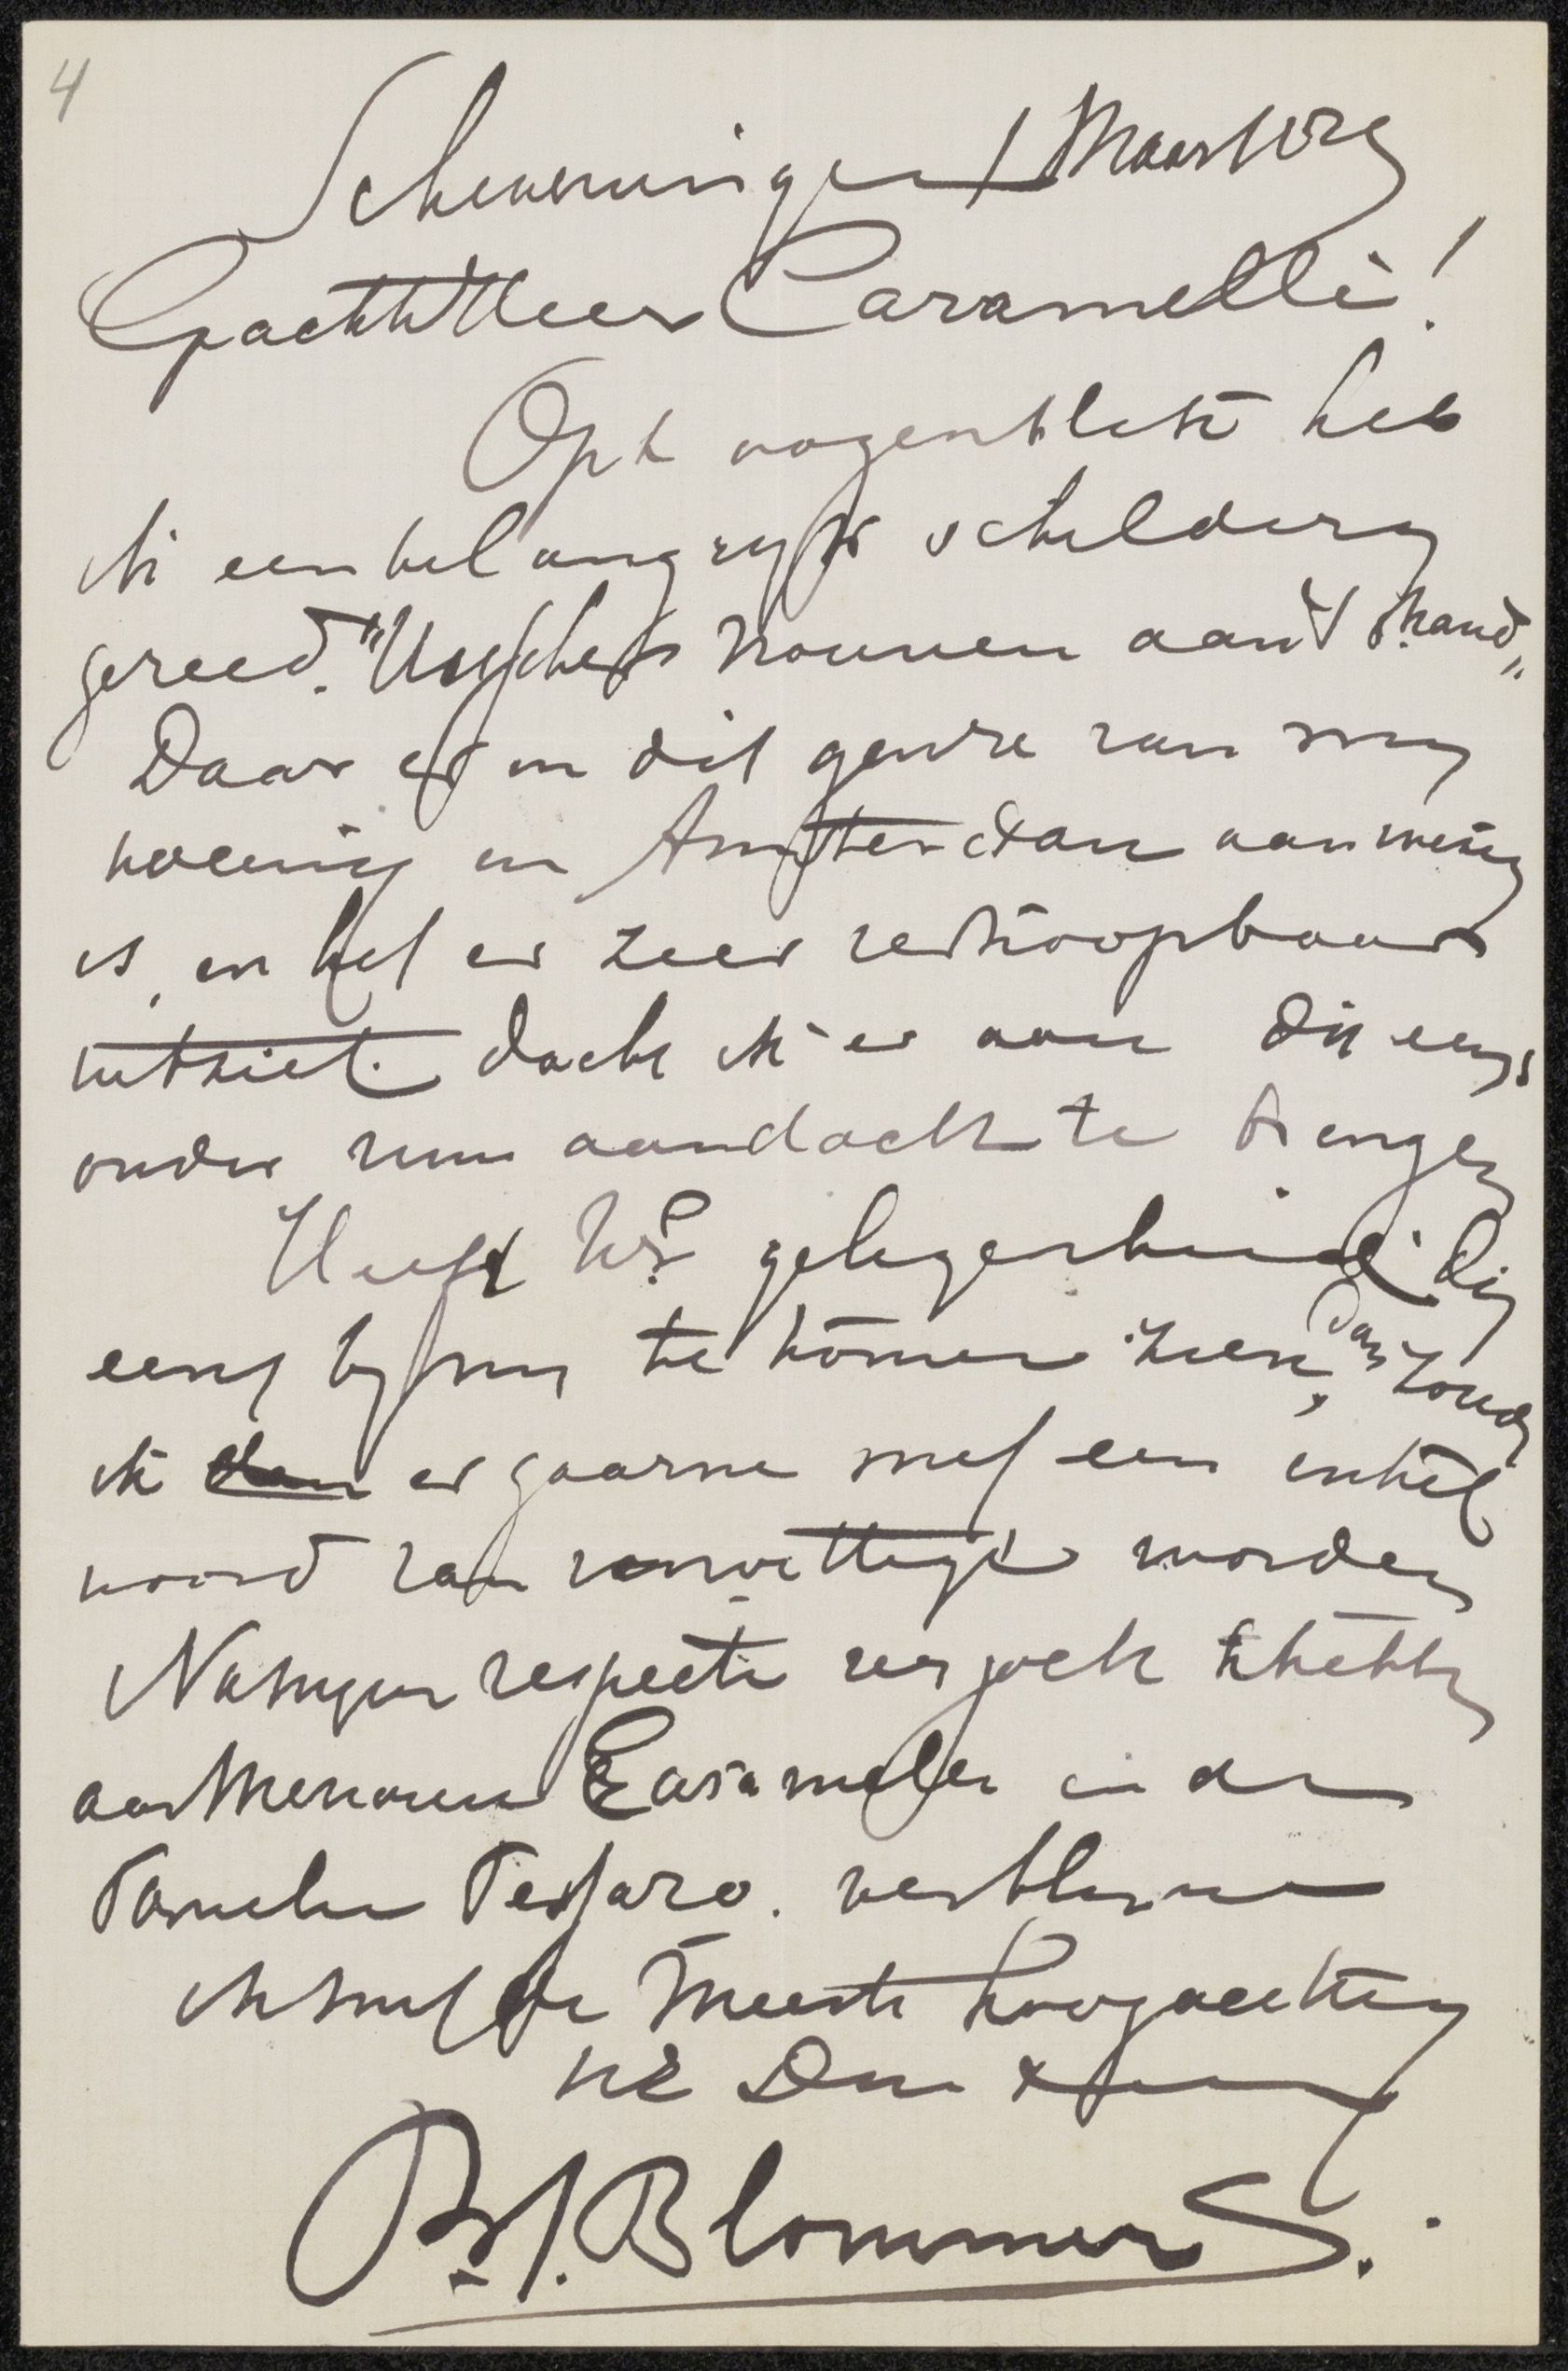 4
Scheveningen 1 Maart 1902
Geachte Heer Caramelli!
Op 't oogenblik heb
ik een belangrijk schilderij
gereed. "Visschers vrouwen aan 't strand"
Daar er in dit genre van mij
weinig in Amsterdam aanwezig
is, en het er zeer verkoopbaar
uitziet. dacht ik er aan dit eens
onder uwe aandacht te brengen
Heeft UE gelegenheid dit
eens bij mij te komen zien, dan zoude
ik dan er gaarne met een enkel
woord van verwittigd worden
Na mijne respecten verzocht te hebben
aan Mevrouw Caramelli en de
Familie Tessaro. verblijve
ik met de meeste hoogachting
UE Dw
B.J. Blommers.